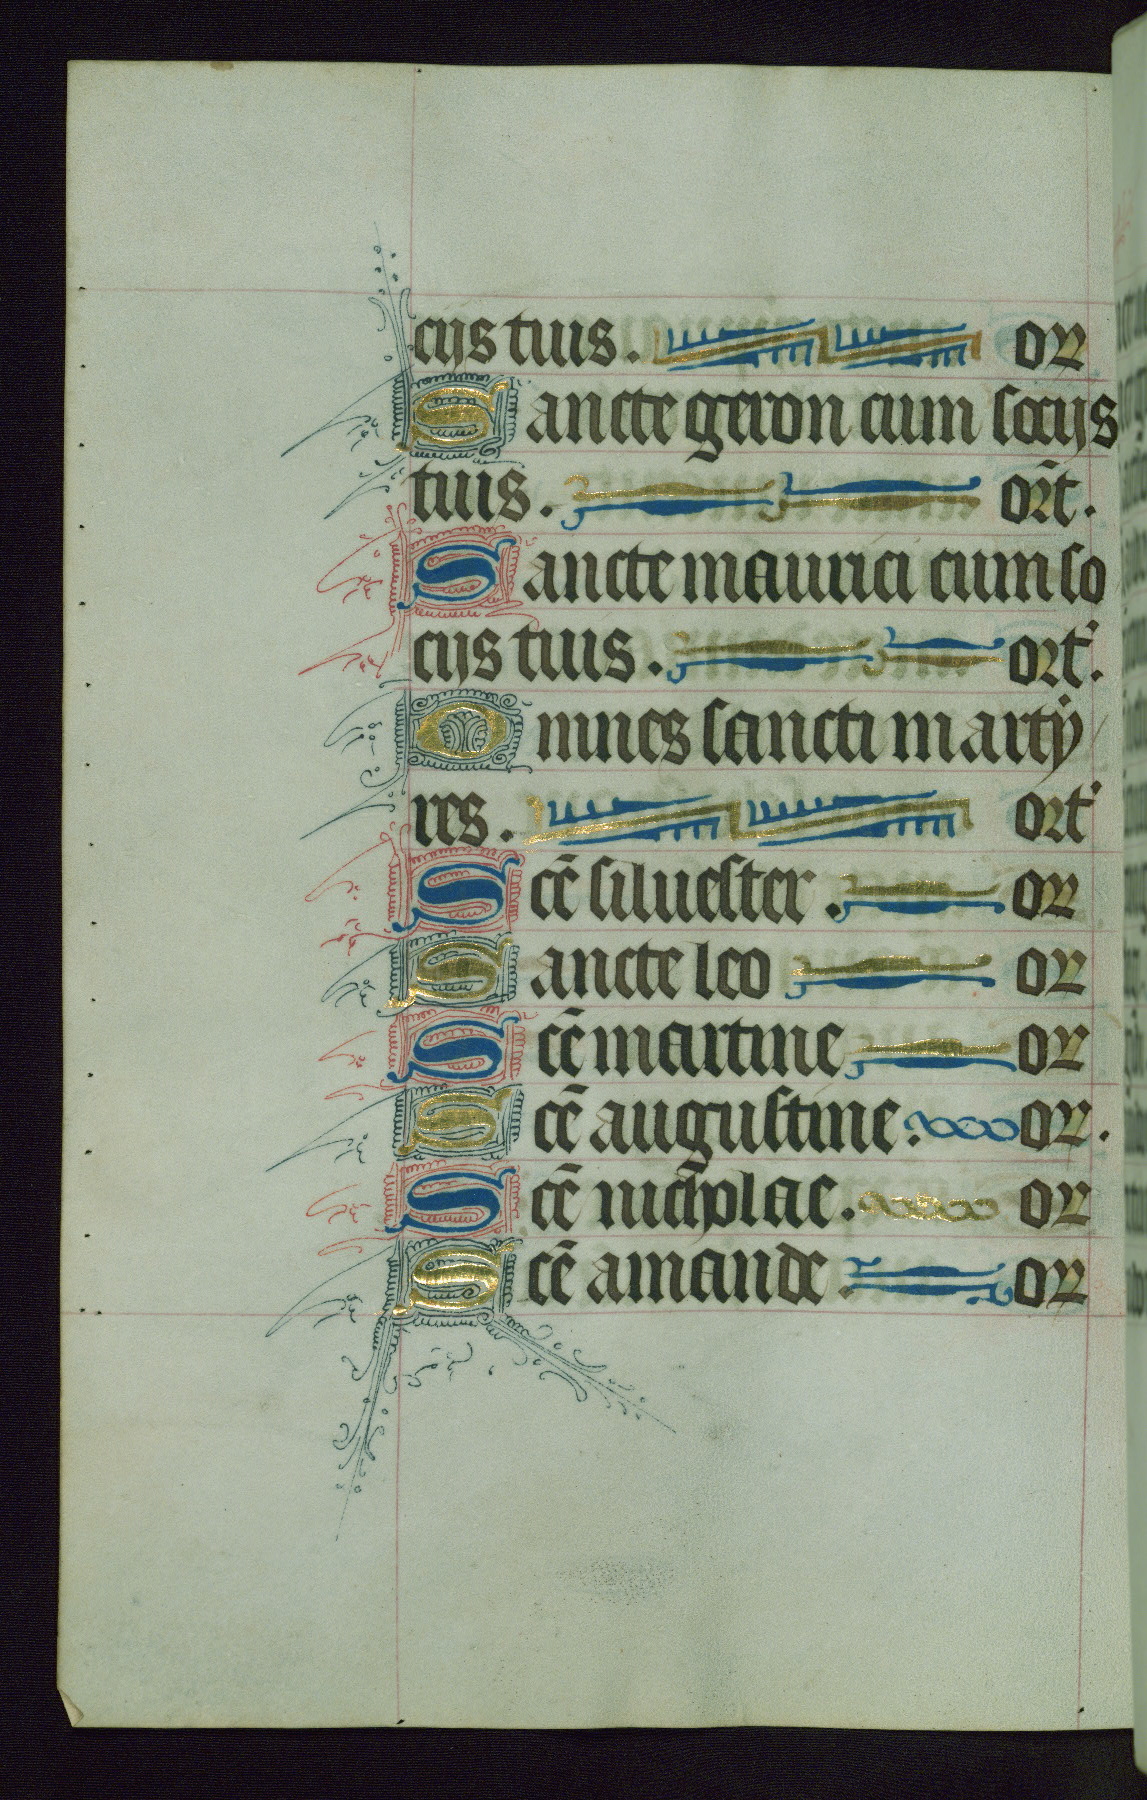 cijs tuis. or
Sancte geron cum socijs
tuis. ort.
Sancte maurici cum so
cijs tuis. ort.
Omnes sancti marty
res. ort
Scē siluester. or
Sancte leo or
Scē martine or
Scē augustine. or.
Scē nicholae. or
Scē amande. or